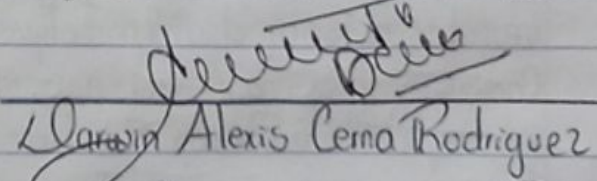 Darwin Alexis Cerna Rodriguez